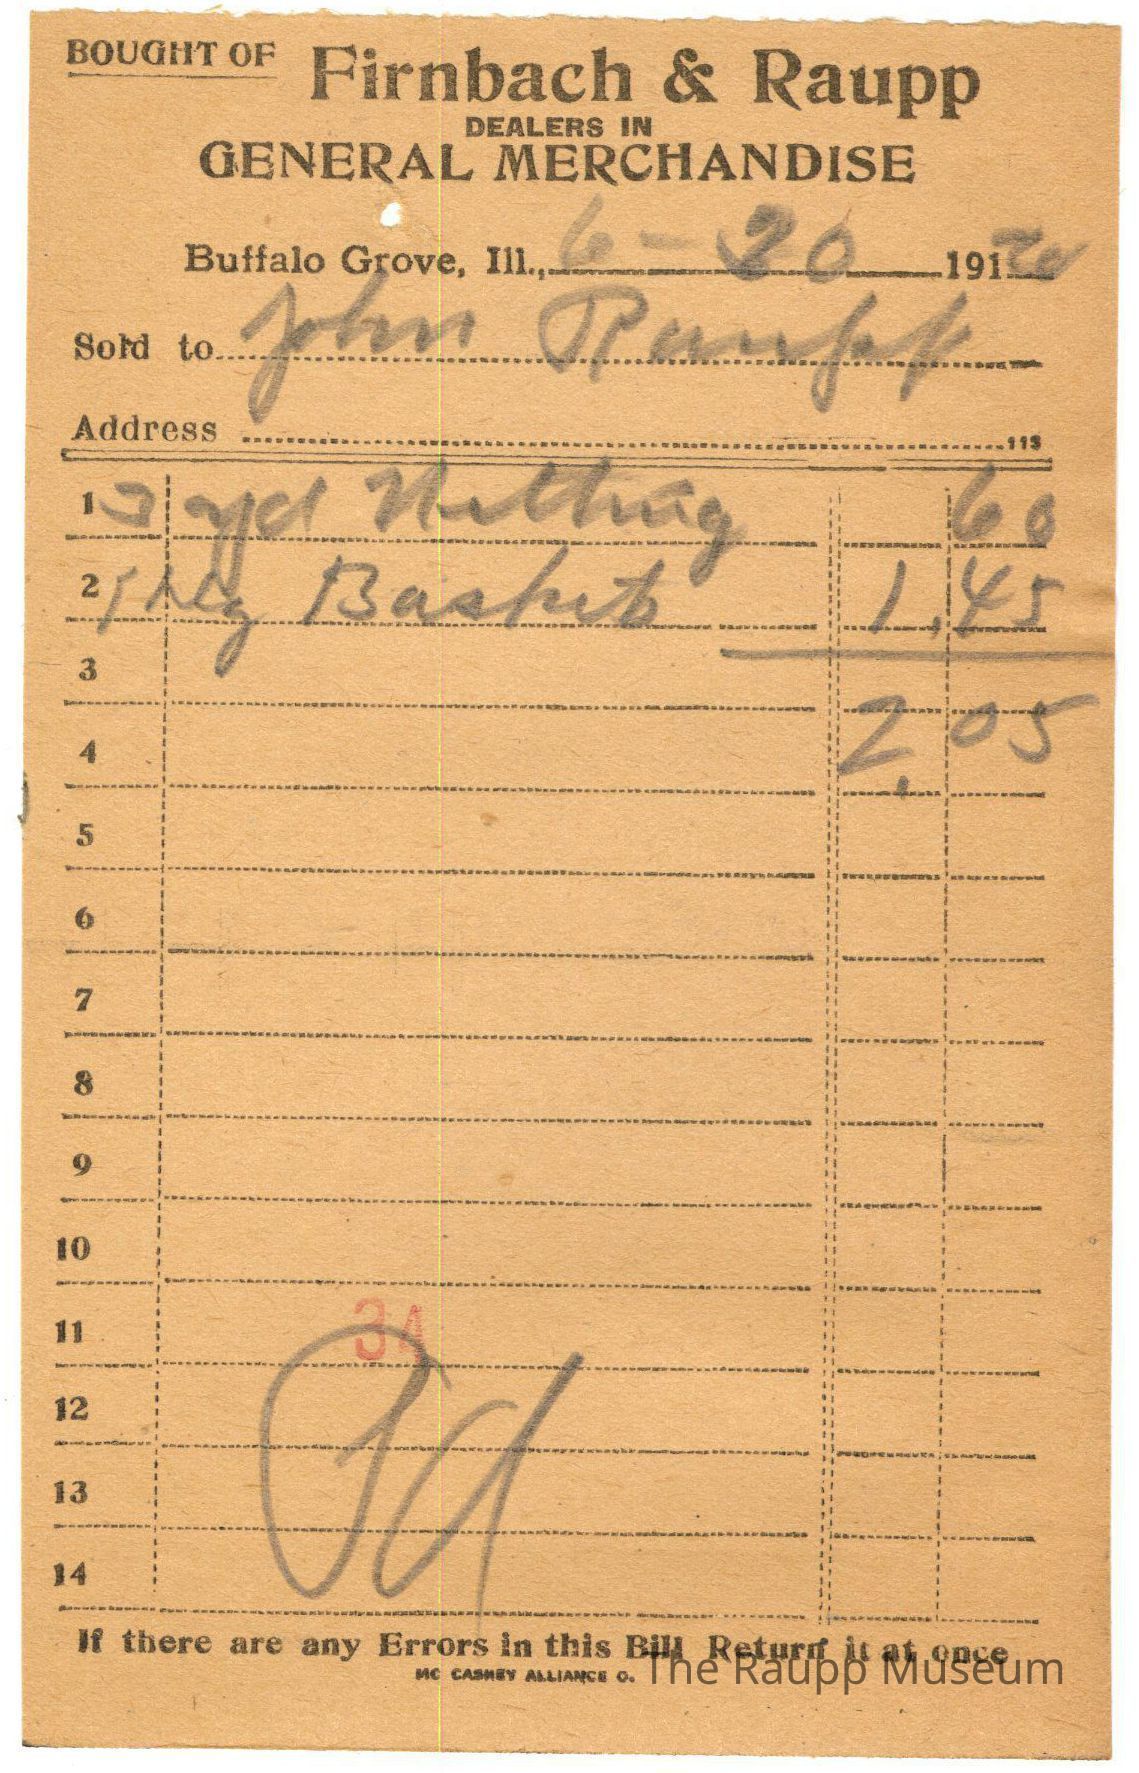 BOUGHT OF Firnbach & Raupp
DEALERS IN
GENERAL MERCHANDISE
Buffalo Grove, Ill., 6-30 191
Sold to John Raupp
Address 113
1 3 yd Netting 60
2 Baskets 1.45
3
2.05
4
5
6
7
8
9
10
34
11
12
Pd
13
14
If there are any Errors in this Bill Return it at once
MC CASKEY ALLIANCE O.
The Raupp Museum